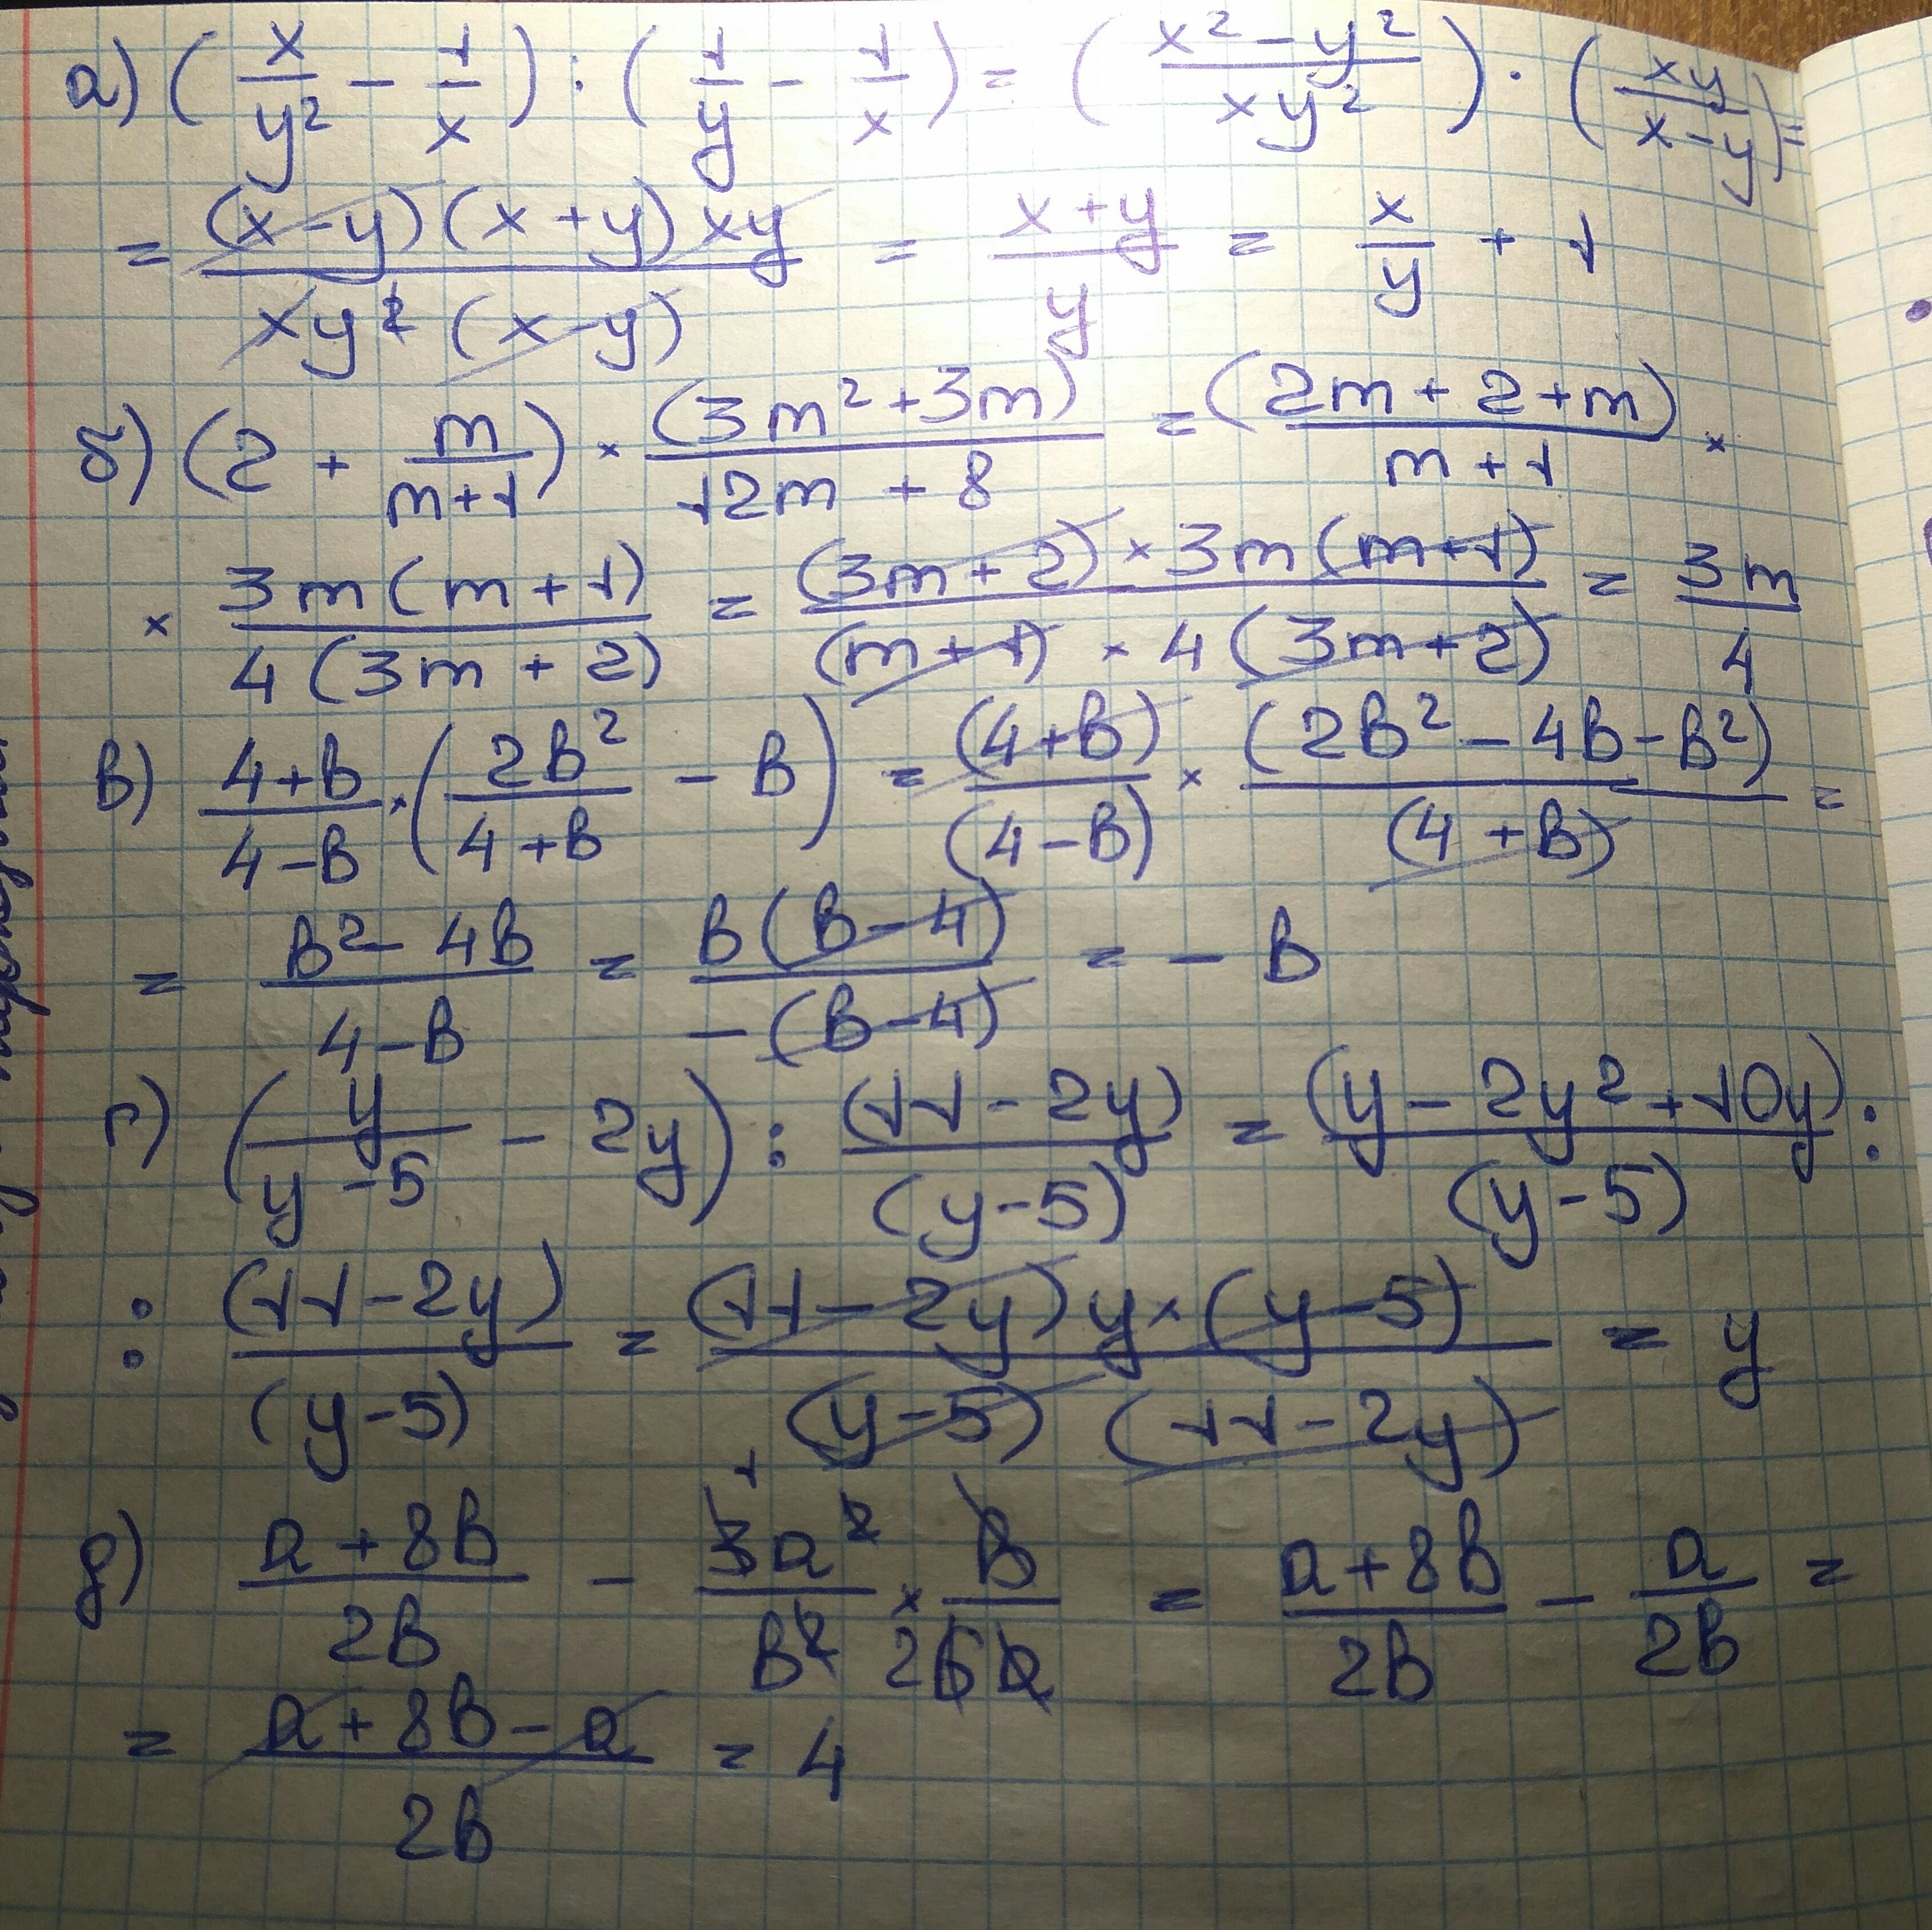 а) (x/y² - 1/x) : (1/y - 1/x) = ((x² - y²)/(xy²)) · (xy/(x-y)) =
= ((x-y)(x+y)xy)/(xy²(x-y)) = (x+y)/y = x/y + 1
б) (2 + m/(m+1)) × (3m²+3m)/(12m + 8) = (2m+2+m)/(m+1) ×
× 3m(m+1)/(4(3m+2)) = ((3m+2) × 3m(m+1))/((m+1) × 4(3m+2)) = 3m/4
в) (4+в)/(4-в) × (2в²/(4+в) - в) = (4+в)/(4-в) × (2в² - 4в - в²)/(4+в) =
= (в² - 4в)/(4-в) = в(в-4)/(-(в-4)) = - в
г) (y/(y-5) - 2y) : (11-2y)/(y-5) = (y - 2y² + 10y)/(y-5) :
: (11-2y)/(y-5) = ((11-2y)y × (y-5))/((y-5)(11-2y)) = y
д) (а+8в)/2в - 3а²/в² × в/26а = (а+8в)/2в - а/2в =
= (а+8в-а)/2в = 4